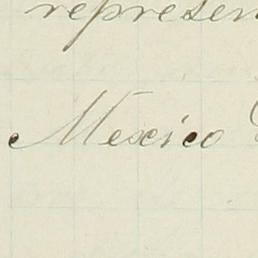 represen
Mexico